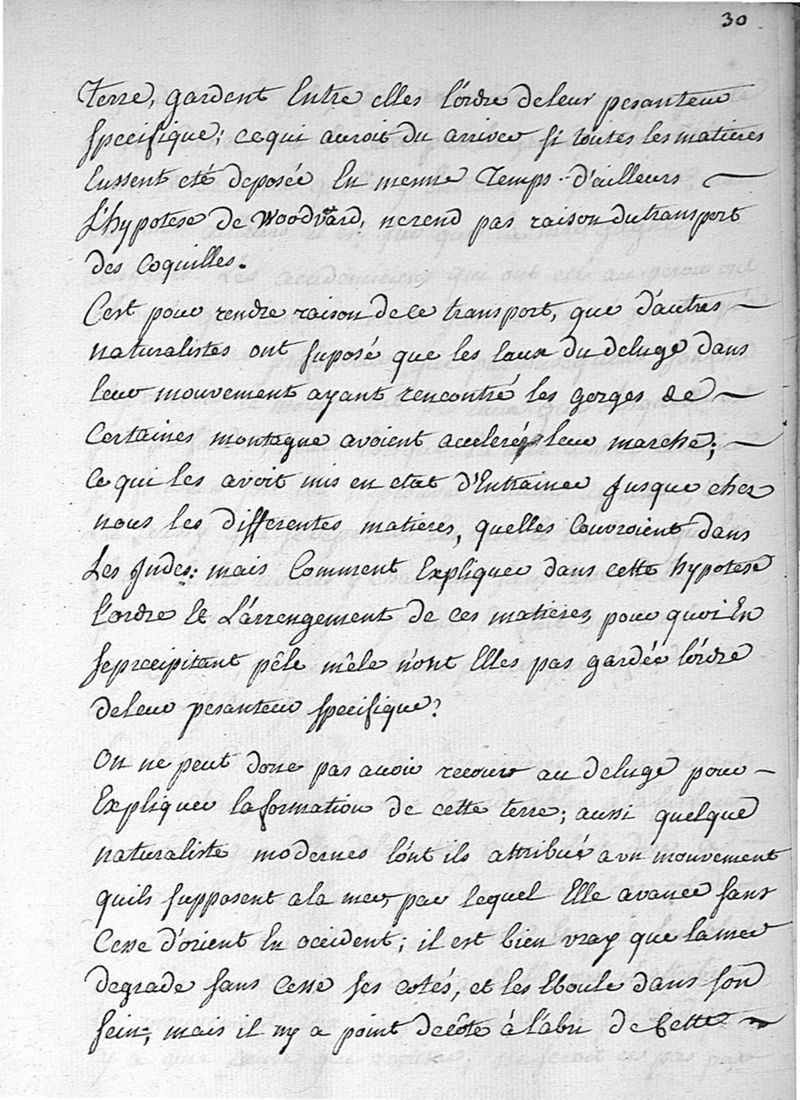 30
Terre, gardent Entre elles l'ordre deleur pesanteur
specifique; cequi auroit du arriver si toutes les matieres
Eussent eté deposée En meme Temps. d'ailleurs —
L'hypotese de Woodvard, nerend pas raison dutransport
des Coquilles.
C'est pour rendre raison dece transport, que d'autres —
naturalistes ont suposé que les Eaux du deluge dans
leur mouvement ayant rencontré les gorges de —
Certaines montagne avoient acceleré leur marche; —
Ce qui les avoit mis en etat d'Entrainer Jusque chez
nous les differentes matieres, quelles Couvroient dans
Les Indes: mais Comment Expliquer dans cette hypotese
l'ordre Et L'arrengement de ces matieres, pour quoi En
seprecipitant pêle mêle n'ont Elles pas gardée l'ordre
deleur pesanteur specifique?
On ne peut donc pas avoir recours au deluge pour —
Expliquer laformation de cette terre; aussi quelque
naturaliste modernes l'ont ils attribué a un mouvement
quils supposent ala mer, par lequel Elle avance sans
Cesse d'orient En occident; il est bien vray que lamer
degrade sans Cesse ses cotés, et les Eboule dans son
sein; mais il ny a point decôte à l'abri de Cette —